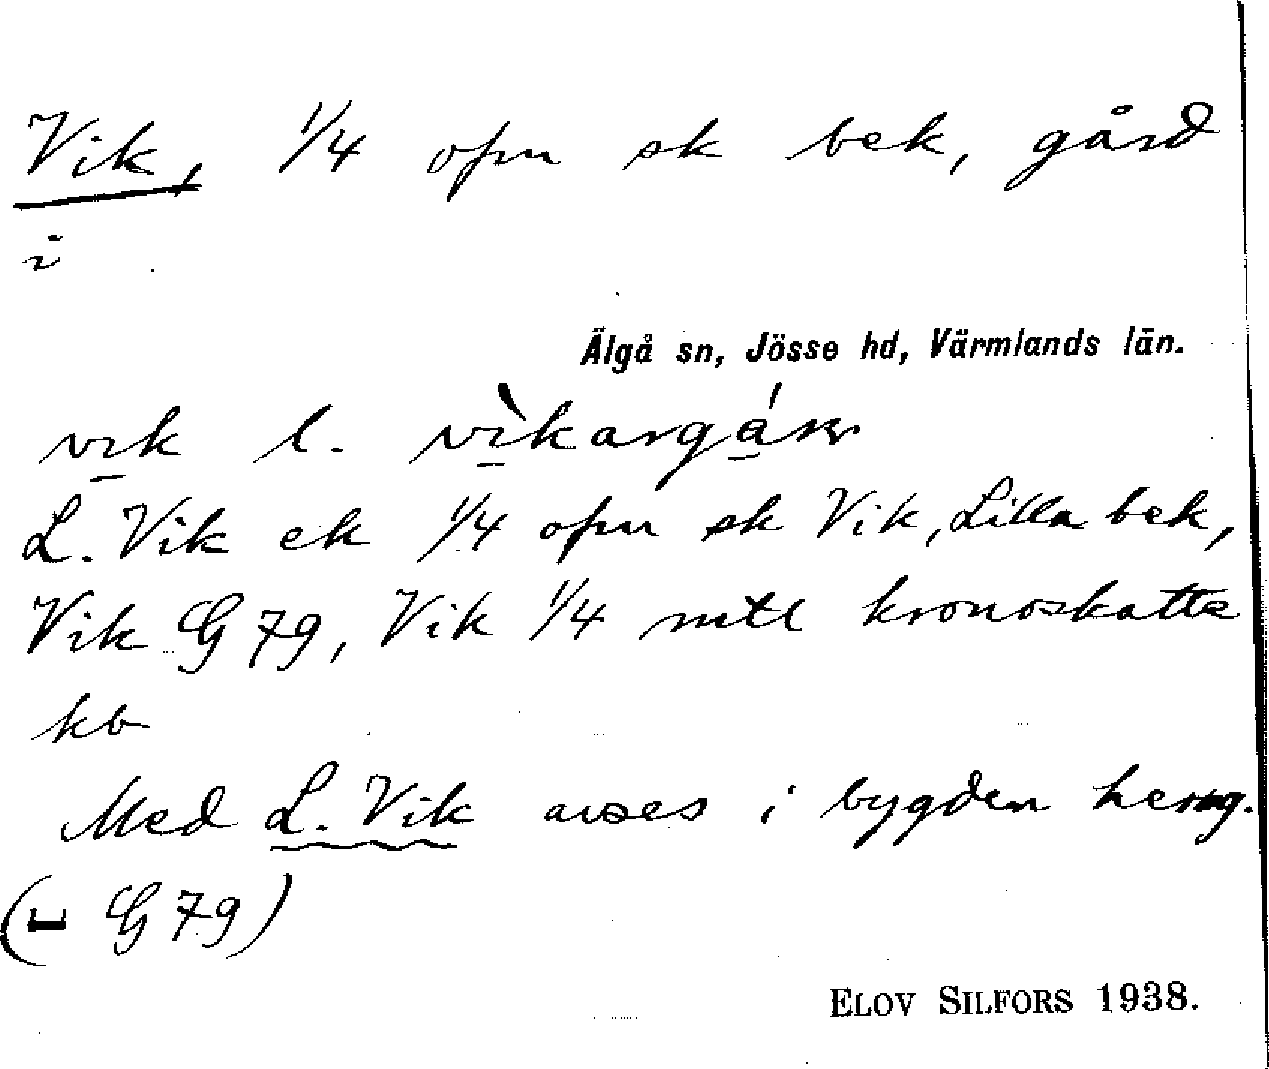 Vik, 1/4 ofm sk bek, gård
i
Älgå sn, Jösse hd, Värmlands län.
vik l. vìkargáṣ
L. Vik ek 1/4 ofm sk Vik, Lilla bek,
Vik G 79, Vik 1/4 mtl kronoskatte
kb
Med L. Vik avses i bygden herrg.
(L G 79)
ELOV SILFORS 1938.